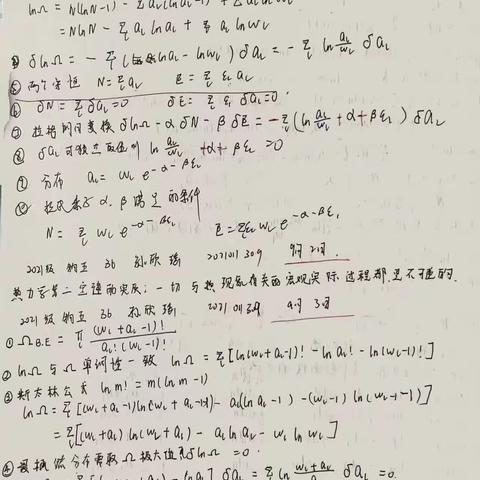 lnΩ = N(lnN-1) - Σ al(lnal-1) + Σ al lnwl
= NlnN - Σ al lnal + Σ al lnwl
④ δlnΩ = - Σ (lnal - lnwl) δal = - Σ ln al/wl δal
⑤ 两个守恒 N=Σal E=Σ εl al
⑥ δN = Σ δal =0 δE = Σ εl δal =0
⑦ 拉格朗日变换 δlnΩ - α δN - β δE = -Σ(ln al/wl + α + βεl) δal
⑧ δal 可独立取值则 ln al/wl + α + βεl =0
⑨ 分布 al = wl e^(-α-βεl)
⑩ 拉氏乘子 α, β 满足的条件
N = Σ wl e^(-α-βεl) E = Σεl wl e^(-α-βεl)
2021级 36 9月2日.
热力学第二定律的实质：一切与热现象有关的宏观实际过程都是不可逆的.
2021级 36 9月3日
① ΩB.E = Π (wl+al-1)! / al!(wl-1)!
② lnΩ 与 Ω 单调性一致 lnΩ = Σ[ln(wl+al-1)! - lnal! - ln(wl-1)!]
③ 斯大林公式 ln m! = m(ln m -1)
lnΩ = Σ[(wl+al-1)(ln(wl+al-1)-1) - al(lnal-1) - (wl-1)(ln(wl-1)-1)]
= Σ[(wl+al) ln(wl+al) - al lnal - wl lnwl]
④ 最概然分布需取 Ω 极大值 δlnΩ = 0.
- lnal] δal = Σ ln (wl+al)/al δal =0